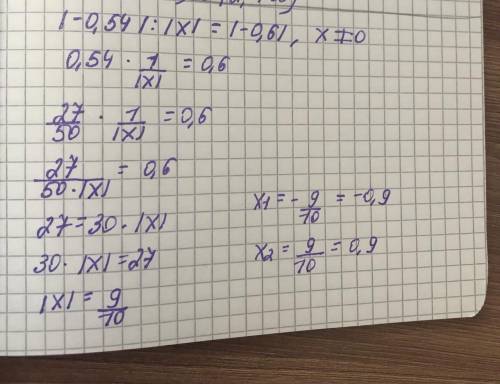 |-0,54|:|x|=|-0,6|, x≠0
0,54 · 1/|x| = 0,6
27/50 · 1/|x| = 0,6
27/50·|x| = 0,6
27=30·|x|
30·|x|=27
|x| = 9/10
x1 = - 9/10 = -0,9
x2 = 9/10 = 0,9